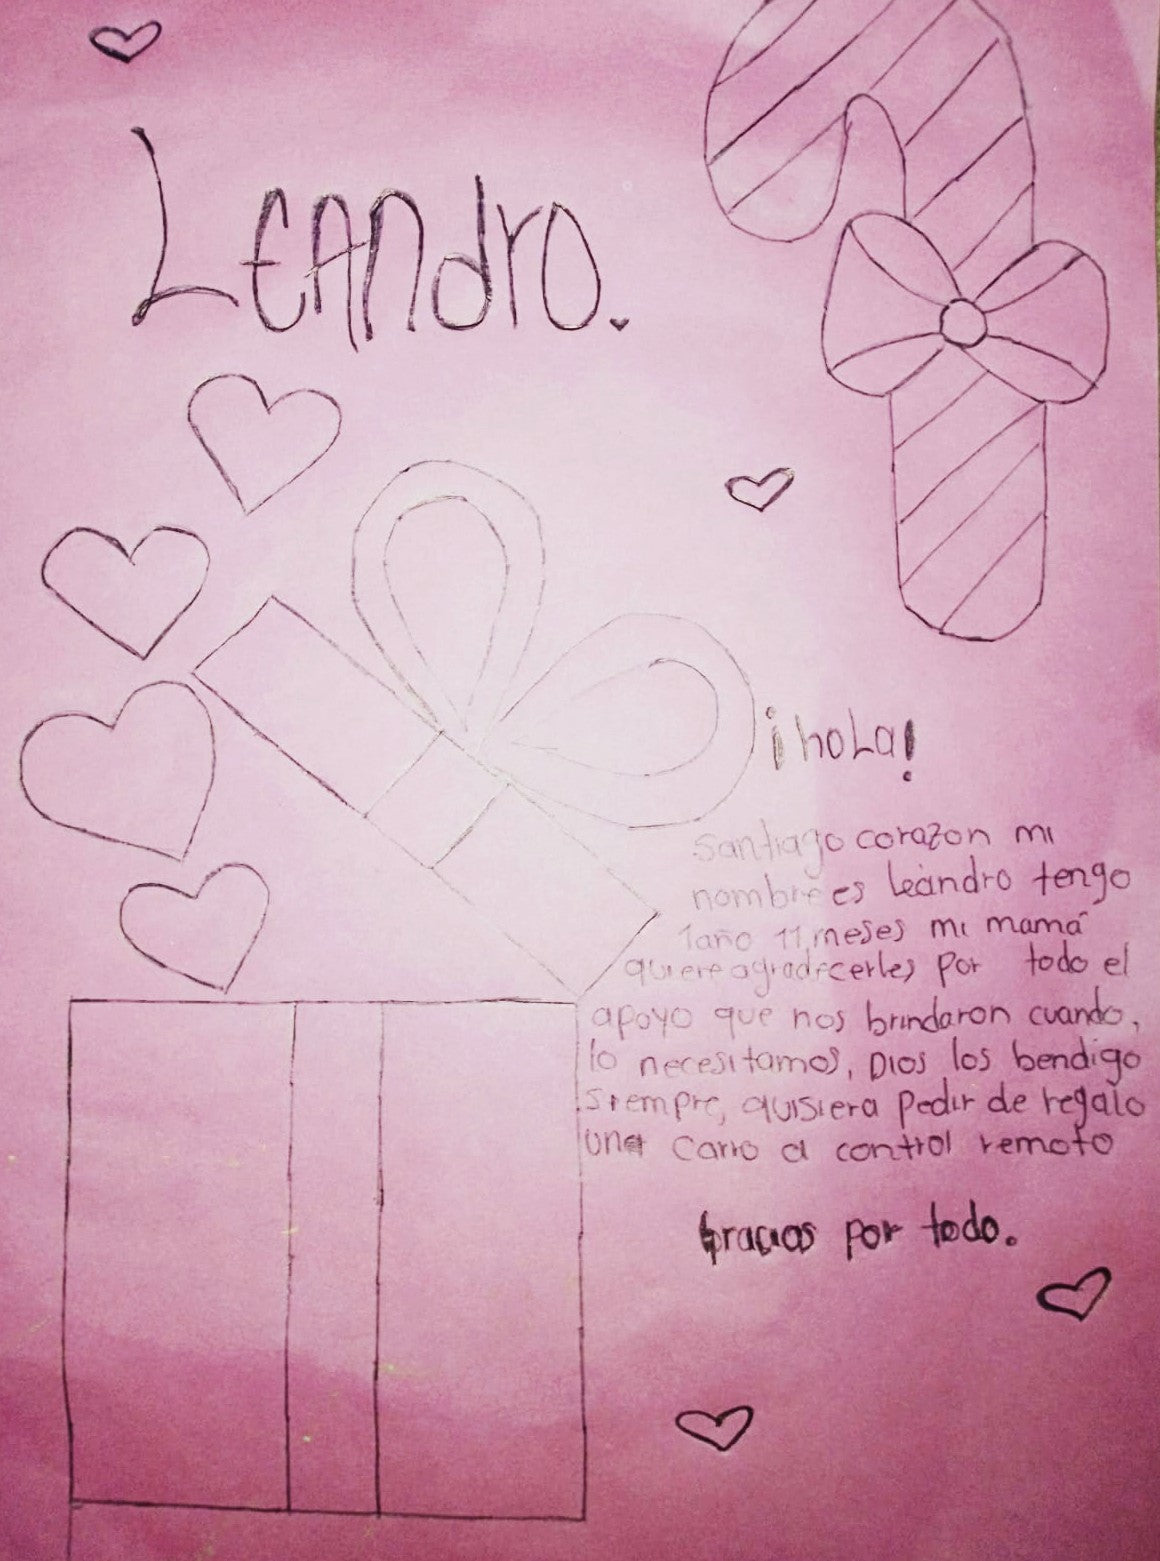 LEAndro.
¡hoLa!
Santiago corazon mi
nombre es leandro tengo
1año 11 meses mi mamá
quiere agradecerles por todo el
apoyo que nos brindaron cuando,
lo necesitamos, Dios los bendigo
siempre, quisiera pedir de regalo
una carro a control remoto
Gracias por todo.